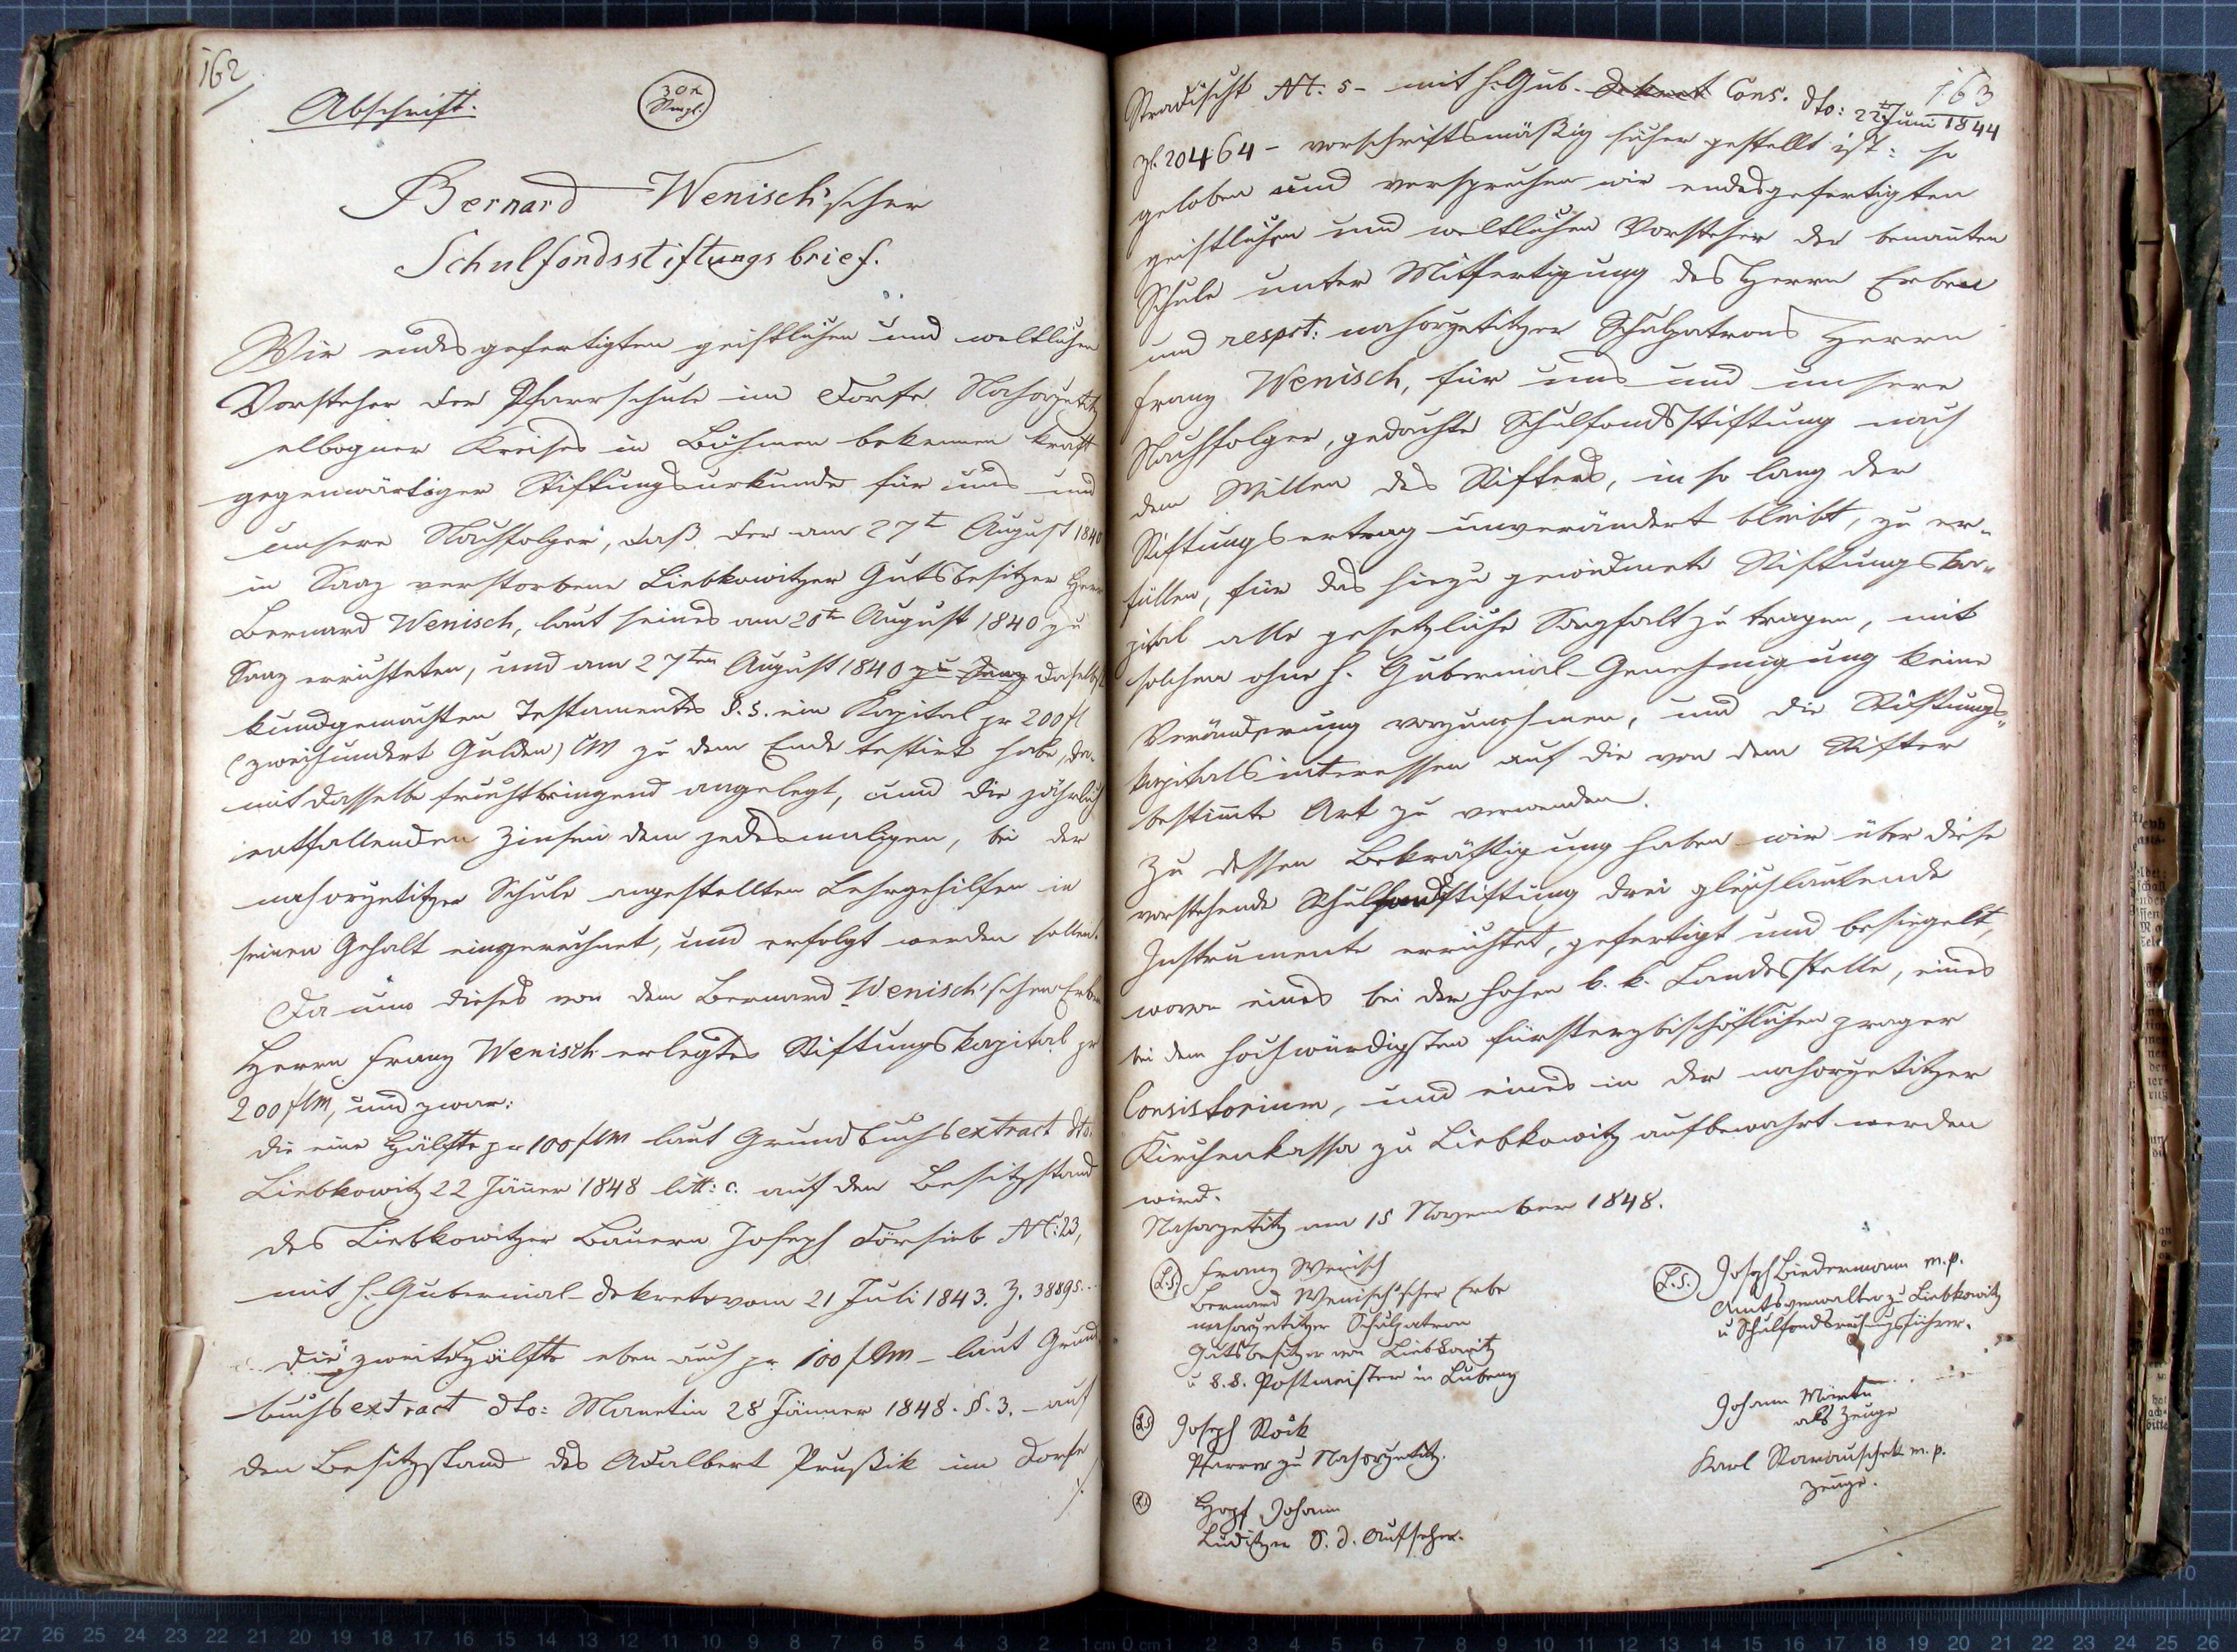 162
Abschrift.
30 x
Stmpl:
Bernard Wenisch'scher
Schulfondsstiftungsbrief.
Wir endesgefertigten geistlichen und weltlichen
Vorsteher der Pfarrschule im Dorfe Nahorzetitz
elbogner Kreises in Böhmen bekennen kraft
gegenwärtiger Stiftungsurkunde für uns und
unsere Nachfolger, daß der am 27t August 1840
in Saaz verstorbene Liebkowitzer Gutsbesitzer Herr
Bernard Wenisch, laut seines am 20te August 1840 zu
Saaz errichteten, und am 27ten August 1840 zu Saaz daselbst
kundgemachten Testamentes §. 5. ein Kapital pr 200 fl
(zweihundert Gulden) CM zu dem Ende testirt habe, da-
mit dasselbe fruchtbringend angelegt, und die jährlich
entfallenden Zinsen dem jedesmaligen, bei der
nahorzetitzer Schule angestellten Lehrgehilfen in
seinen Gehalt eingerechnet, und erfolgt werden sollen.
Da nun dieses von dem Bernard Wenisch'schen Erben
Herrn Franz Wenisch erlegtes Stiftungskapital pr
200 f CM, und zwar:
die eine Hälfte pr 100 f CM laut Grundbuchsextract dto.
Liebkowitz 22 Jäner 1848 litt: c. auf den Besitzstand
des Liebkowitzer Bauern Joseph Dörsieb N: 23,
mit h. Gubernial-Dekrete vom 21 Juli 1843. Z. 38895.
die zweite Hälfte eben auch pr 100 f CM - laut Grund
buchsextract dto: Manetin 28 Jänner 1848. §. 3. - auf
den Besitzstand des Adalbert Prußik im Dorfe
./.
163
Stradischt N: 5 - mit h. Gub. Dekret Cons. dto: 22t Juni 1844
Zl. 20464 - vorschriftsmäßig sicher gestellt ist: so
geloben und versprechen wir endesgefertigten
geistlichen und weltlichen Vorsteher der benannten
Schule unter Mitfertigung des Herrn Erben
und respct: nahorzetitzer Schulpatrons Herrn
Franz Wenisch, für uns und unsere
Nachfolger, gedachte Schulfondsstiftung nach
dem Willen des Stifters, in so lang der
Stiftungsertrag unverändert bleibt, zu er-
füllen, für das hiezu gewidmete Stiftungska-
pital alle gesetzliche Sorgfalt zu tragen, mit
solchem ohne h. Gubernial-Genehmigung keine
Veränderung vorzunehmen, und die Stiftungs-
kapitalsinteressen auf die von dem Stifter
bestimte Art zu verwenden.
Zu dessen Bekräftigung haben wir über diese
vorstehende Schulfondsstiftung drei gleichlautende
Instrumente errichtet, gefertigt und besiegelt,
wovon eines bei der hohen k. k. Landesstelle, eines
bei dem hochwürdigsten fürsterzbischöflichen prager
Consistorium, und eines in der nahorzetitzer
Kirchenkassa zu Liebkowitz aufbewahrt werden
wird.
Nahorzetitz am 15 November 1848.
L.S. Franz Wenisch
Bernard Wenisch'scher Erbe
nahorzetitzer Schulpatron
Gutsbesitzer von Liebkowitz
u k. k. Postmeister in Lubenz
L.S. Joseph Röck
Pfarrer zu Nahorzetitz.
L.S. Hopf Johann
Luditzer S. d. Aufseher.
L.S. Joseph Biedermann m.p.
Amtsverwalter zu Liebkowitz
u Schulfondsrechnungsführer.
Johann
als Zeuge
Karl m.p.
Zeuge.